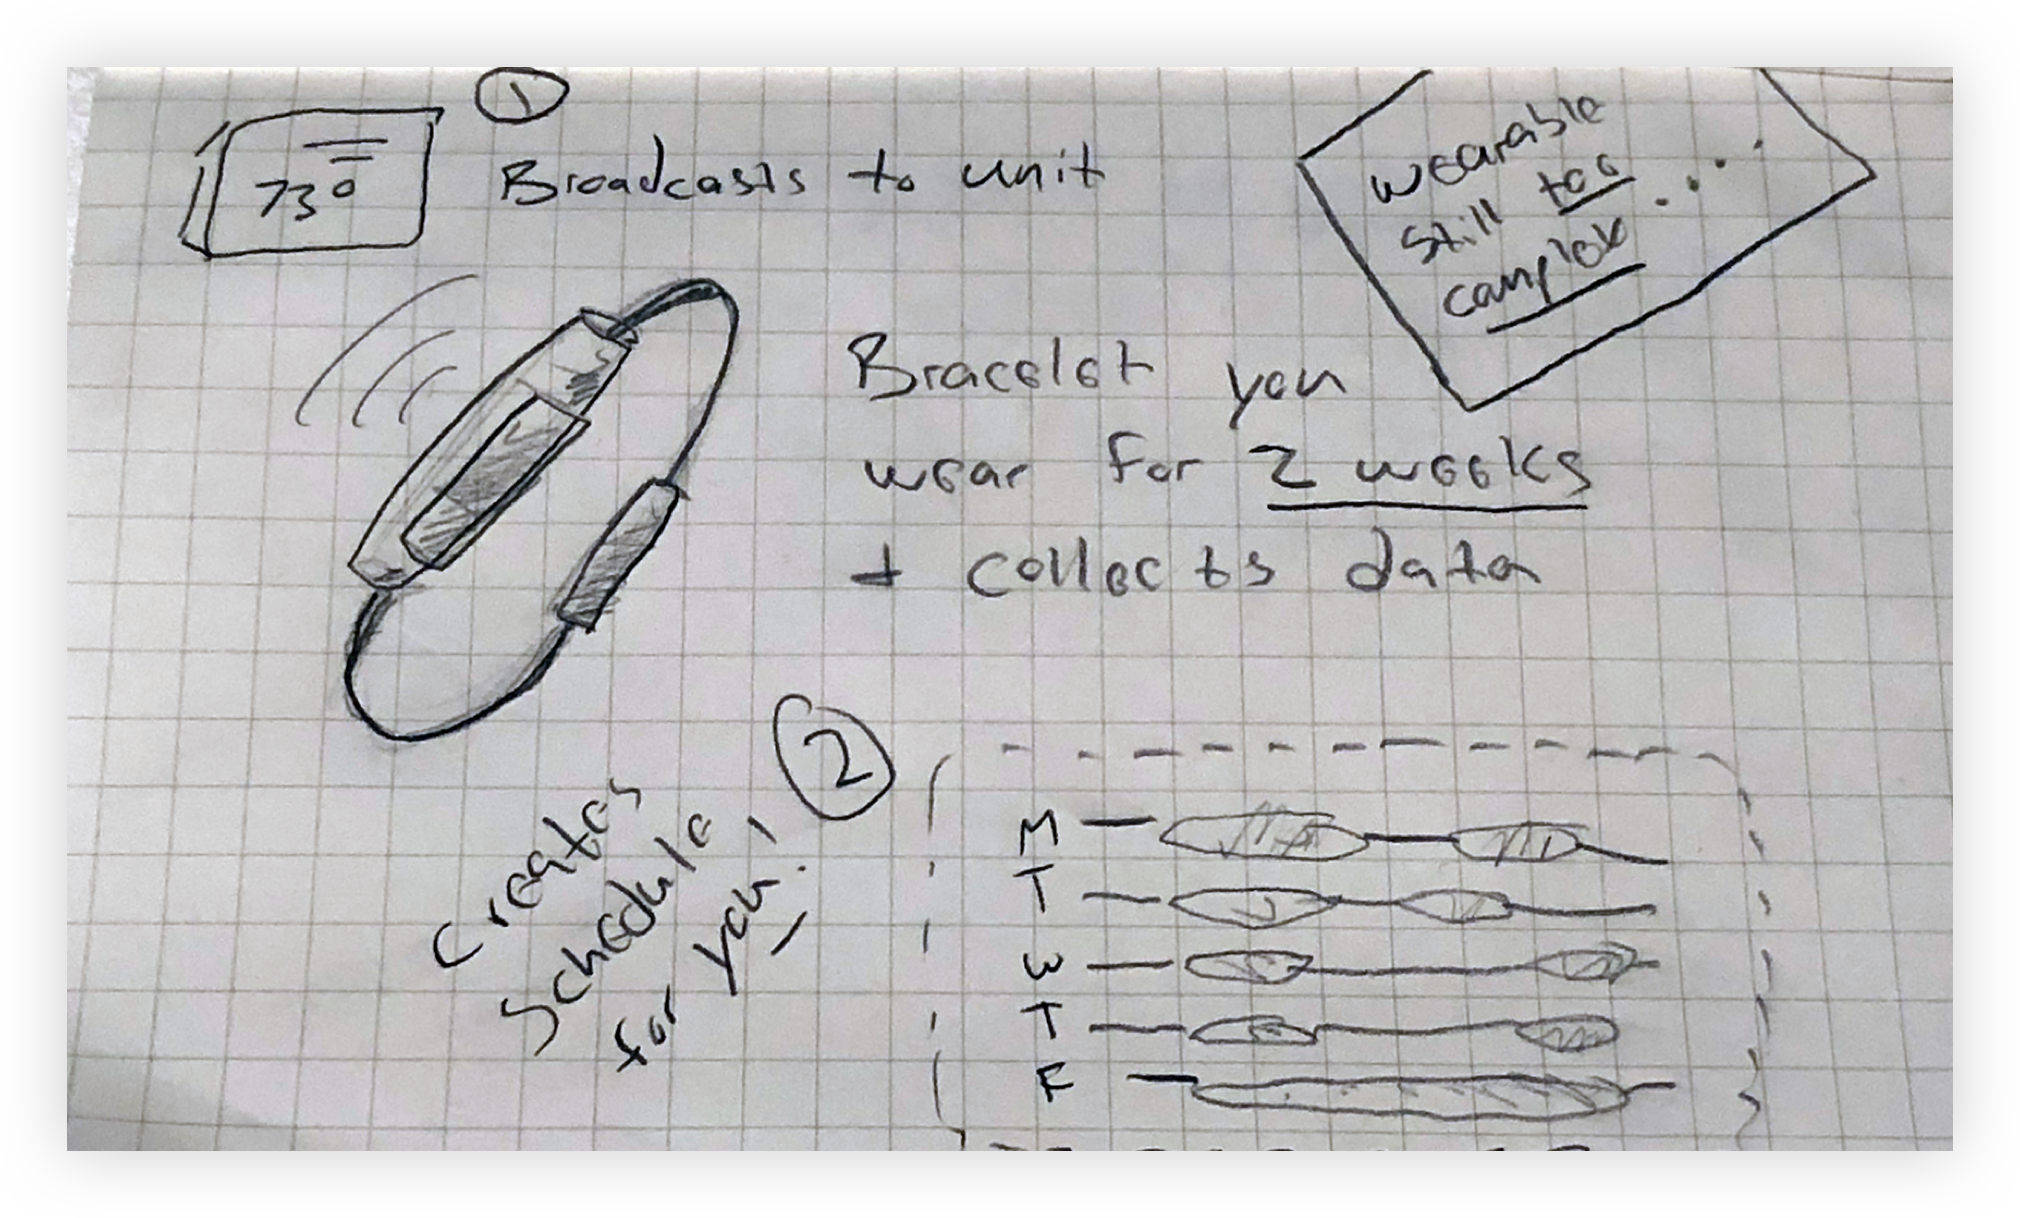 1
73°
Broadcasts to unit
wearable
still too
complex....
Bracelet you
wear for 2 weeks
+ collects data
2
Creates
Schedule
for you!
M
T
W
T
F